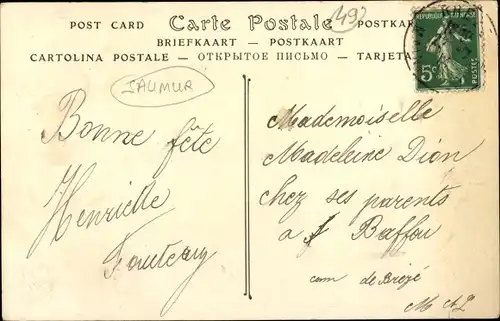 POST CARD Carte Postale POSTKAR
BRIEFKAART — POSTKAART
CARTOLINA POSTALE — ОТКРЫТОЕ ПИСЬМО — TARJETA
49
RÉPUBLIQUE FRANÇAISE
5c
POSTES
SAUMUR
Bonne fête
Henriette
Mademoiselle
Madeleine Dion
chez ses parents
a Baffou
com de Brézé
M &L